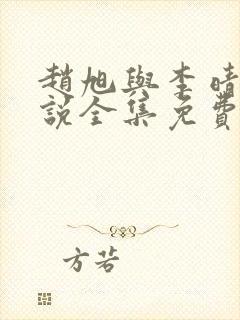 趙旭與李晴
說全集免費
方若